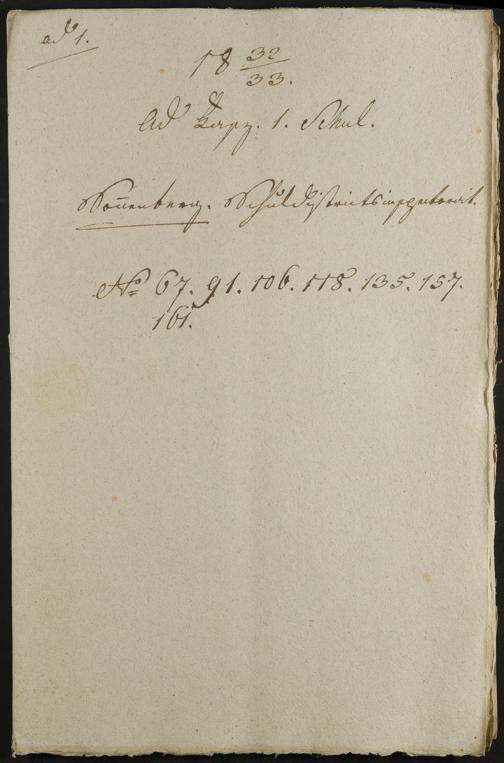 ad 1.
18 32/33.
Ad Kapz. 1. Schul.
Sonnenberg. Schuldistricts
No 67. 91. 106. 118. 135. 157.
161.